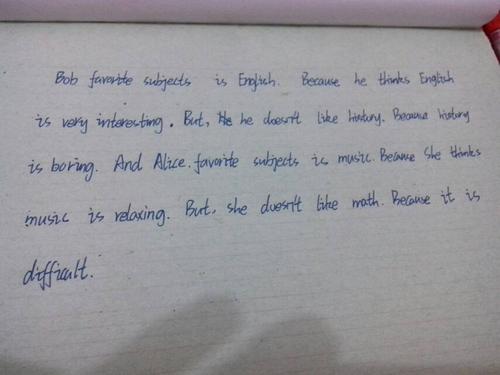 Bob favorite subjects is English. Because he thinks English
is very interesting. But, he doesn't like history. Because history
is boring. And Alice. favorite subjects is music. Because she thinks
music is relaxing. But, she doesn't like math. Because it is
difficult.